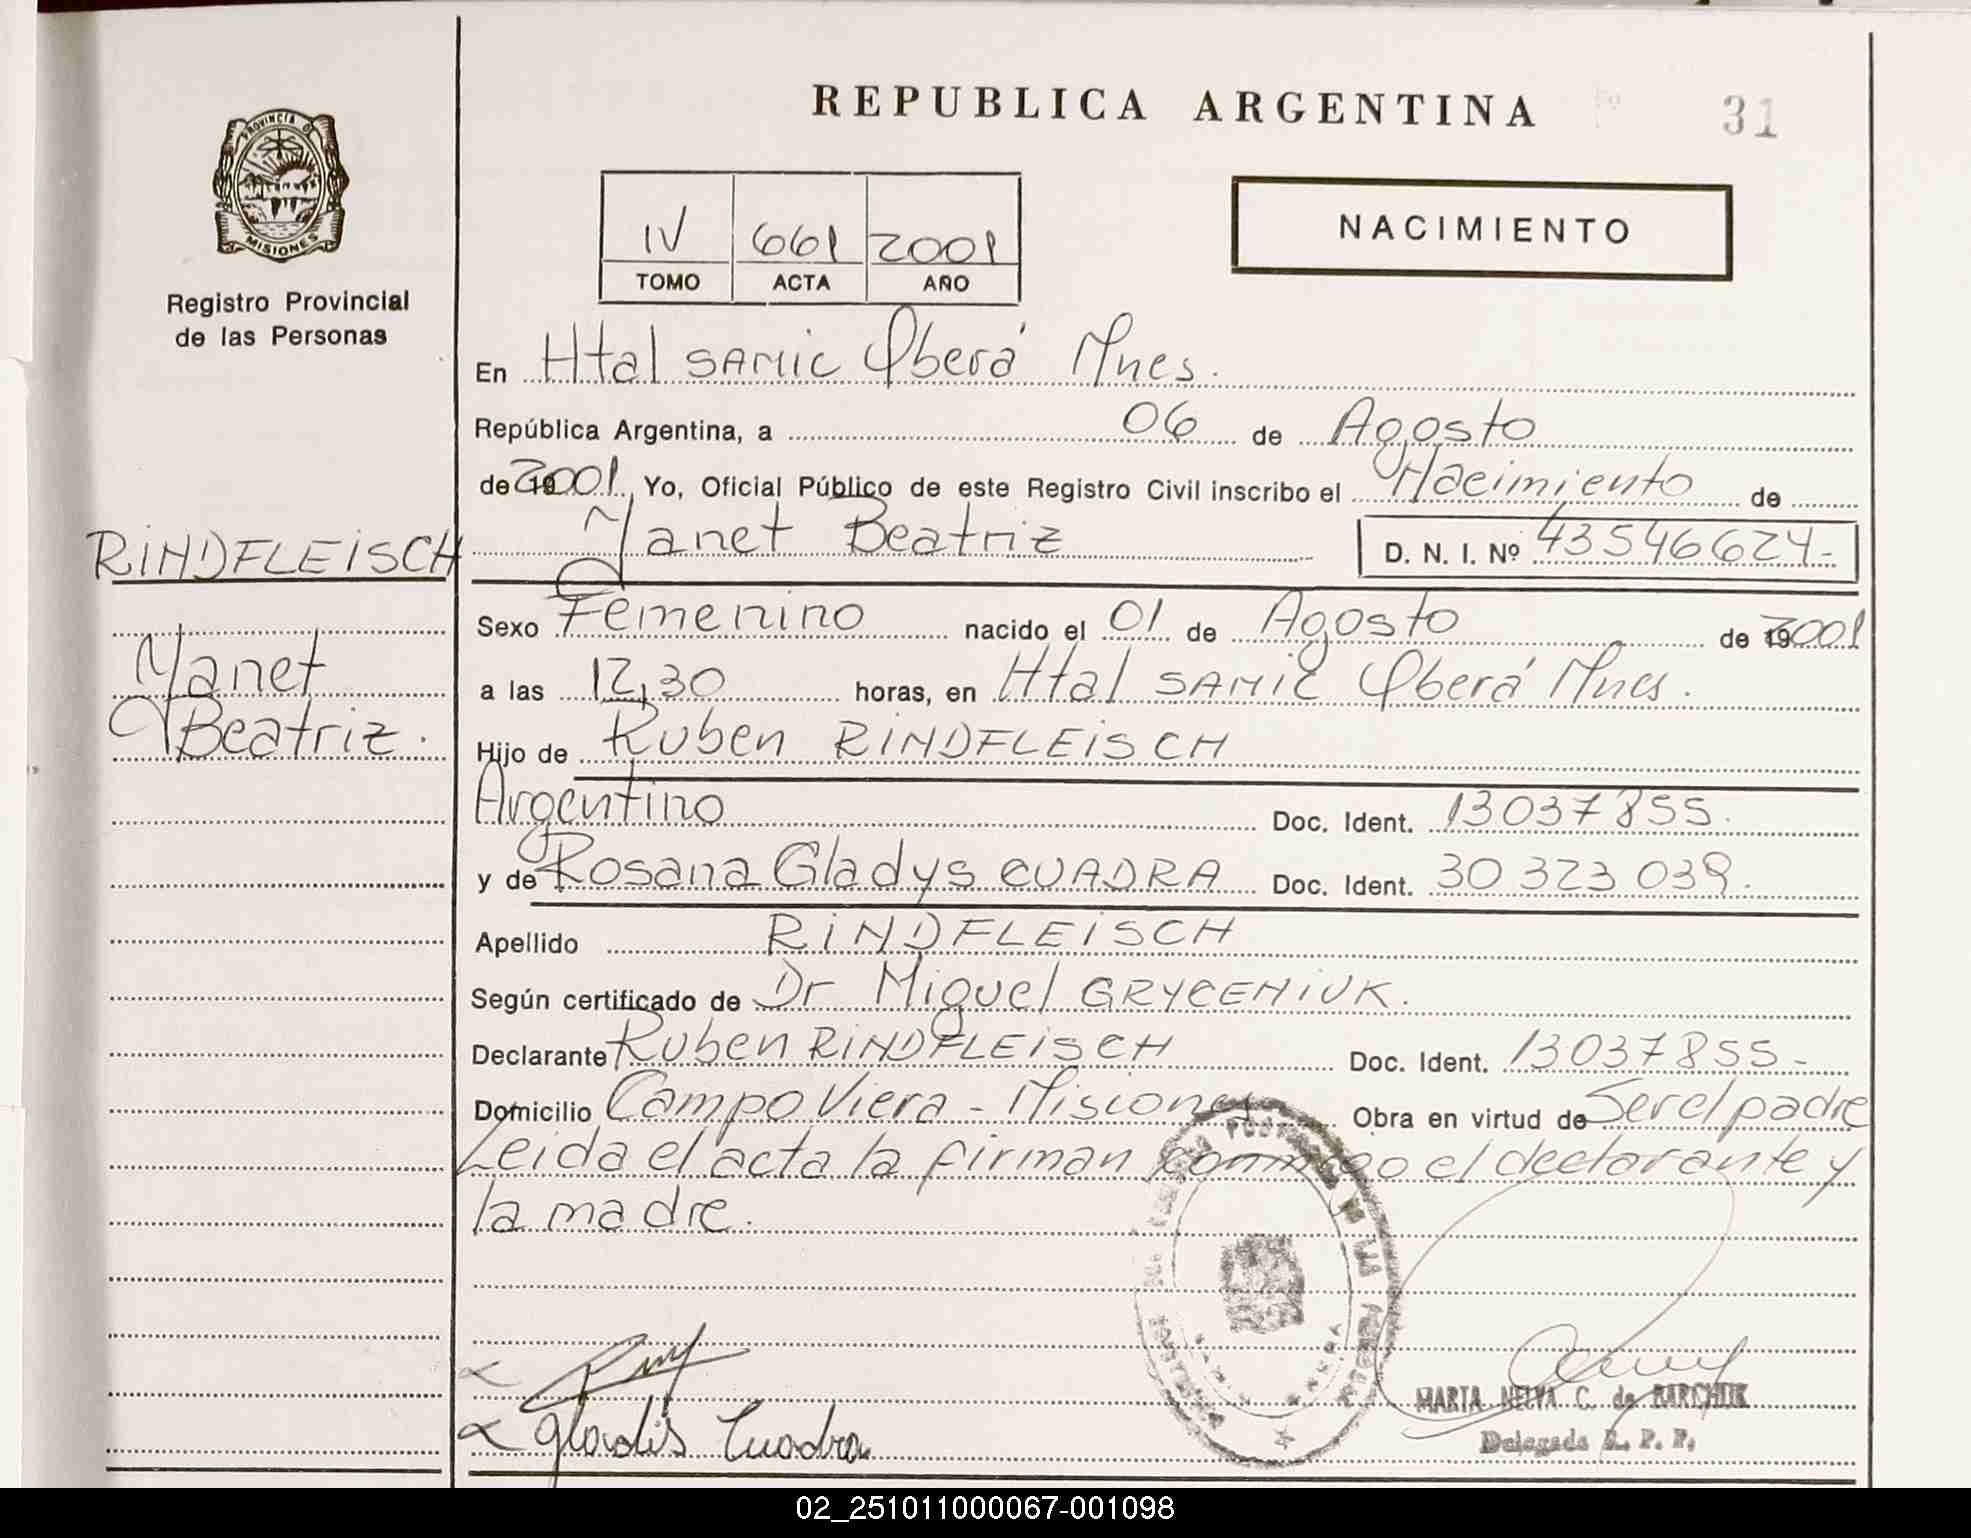 REPUBLICA ARGENTINA
31
PROVINCIA D
MISIONES
Registro Provincial
de las Personas
IV 661 2001
TOMO ACTA AÑO
NACIMIENTO
En Htal SAMIC Oberá Mnes.
República Argentina, a 06 de Agosto
de 2001. Yo, Oficial Público de este Registro Civil inscribo el Nacimiento de
Yanet Beatriz D. N. I. Nº 43546624-
RINDFLEISCH
Yanet
Beatriz.
Sexo Femenino nacido el 01 de Agosto de 19 2001
a las 12,30 horas, en Htal SAMIC Oberá Mnes.
Hijo de Ruben RINDFLEISCH
Argentino Doc. Ident. 13037855.
y de Rosana Gladys CUADRA Doc. Ident. 30 323 039.
Apellido RINDFLEISCH
Según certificado de Dr Miguel GRYCENIUK.
Declarante Ruben RINDFLEISCH Doc. Ident. 13037855-
Domicilio Campo Viera - Misiones Obra en virtud de Ser el padre
Leida el acta la firman conmigo el declarante y
la madre.
Gladis Cuadra
MARTA NELVA C. de BARCHUK
Delegada R. P. P.
02_251011000067-001098